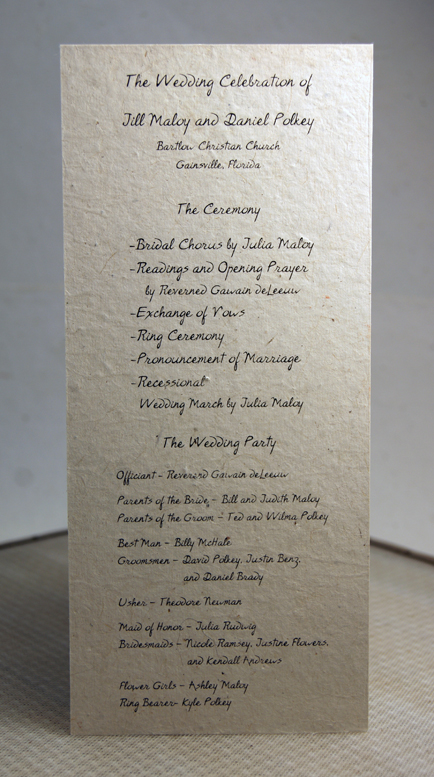 The Wedding Celebration of
Jill Maloy and Daniel Polkey
Bartlow Christian Church
Gainsville, Florida
The Ceremony
-Bridal Chorus by Julia Maloy
-Readings and Opening Prayer
by Reverned Gawain deLeeuw
-Exchange of Vows
-Ring Ceremony
-Pronouncement of Marriage
-Recessional
Wedding March by Julia Maloy
The Wedding Party
Officiant - Reverend Gawain deLeeuw
Parents of the Bride - Bill and Judith Maloy
Parents of the Groom - Ted and Wilma Polkey
Best Man - Billy McHale
Groomsmen - David Polkey, Justin Benz,
and Daniel Brady
Usher - Theodore Newman
Maid of Honor - Julia Rudwig
Bridesmaids - Nicole Ramsey, Justine Flowers,
and Kendall Andrews
Flower Girls - Ashley Maloy
Ring Bearer- Kyle Polkey